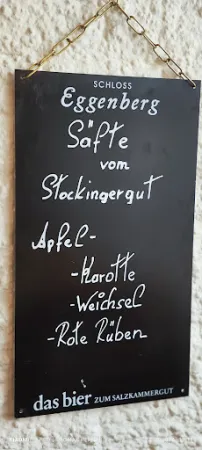 SCHLOSS
Eggenberg
Säfte
vom
Stockingergut
Apfel-
-Karotte
-Weichsel
-Rote Rüben
das bier ZUM SALZKAMMERGUT